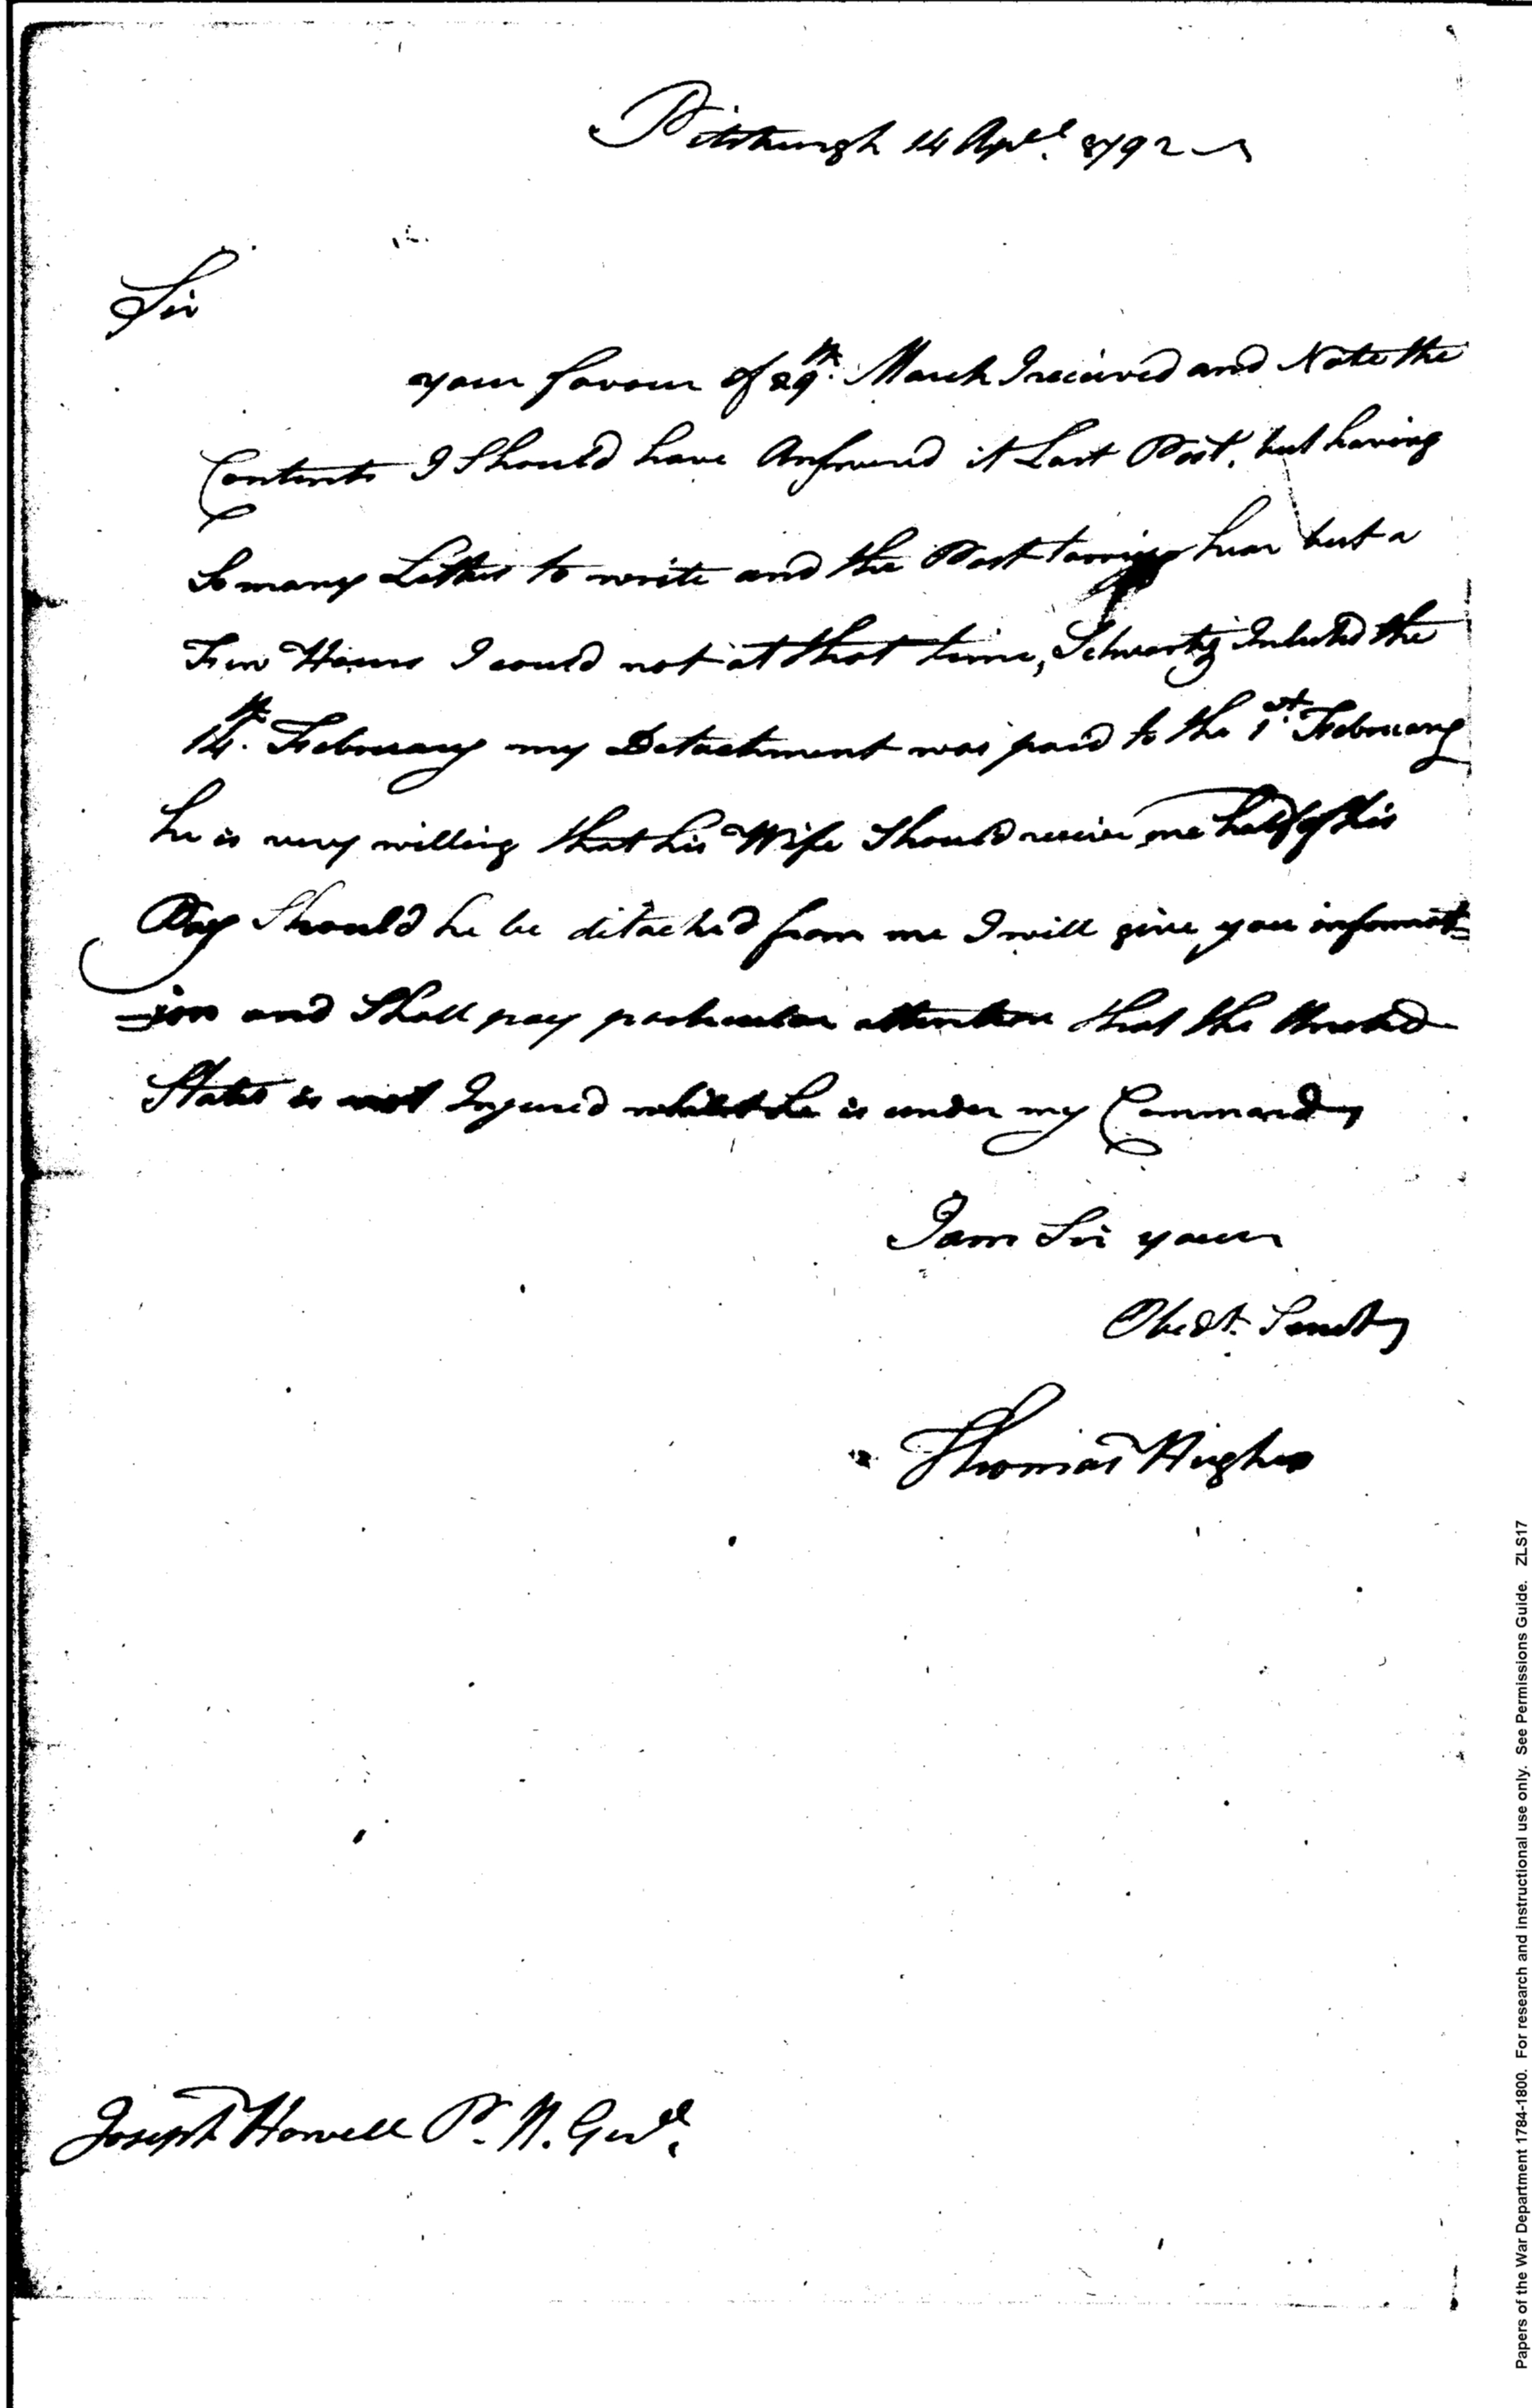 Pittsburgh 14 Apl. 1792
Sir
your favour of 29th. March I received and Note the
Contents I Should have Answered it Last Post, but having
So many Letters to write and the Post tarrying hear but a
Few Hours I could not at that time, Schwartz Inlisted the
14th. February my Detachment was paid to the 1st. February
he is very willing that his Wife Should receive half of his
Pay Should he be ditached from me I will give you informat=
=ion and Shall pay particular attention that the United
States is not Injured whilst he is under my Command
I am Sir your
Obedt. Servt
Thomas Hughes
Joseph Howell P. M. Genl.
Papers of the War Department 1784-1800. For research and instructional use only. See Permissions Guide. ZLS17